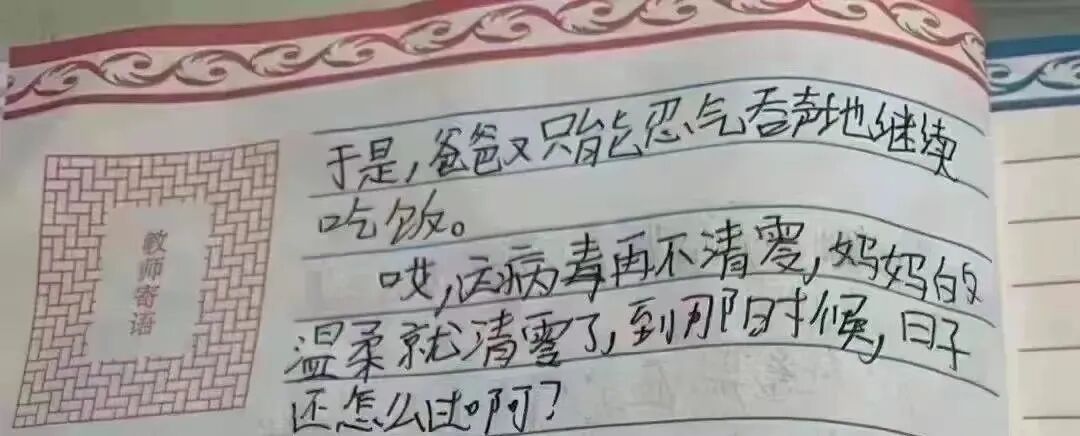 于是,爸爸又只能忍气吞声地继续
吃饭。
哎,这病毒再不清零,妈妈的
温柔就清零了,到那时候,日子
还怎么过啊?
教师寄语